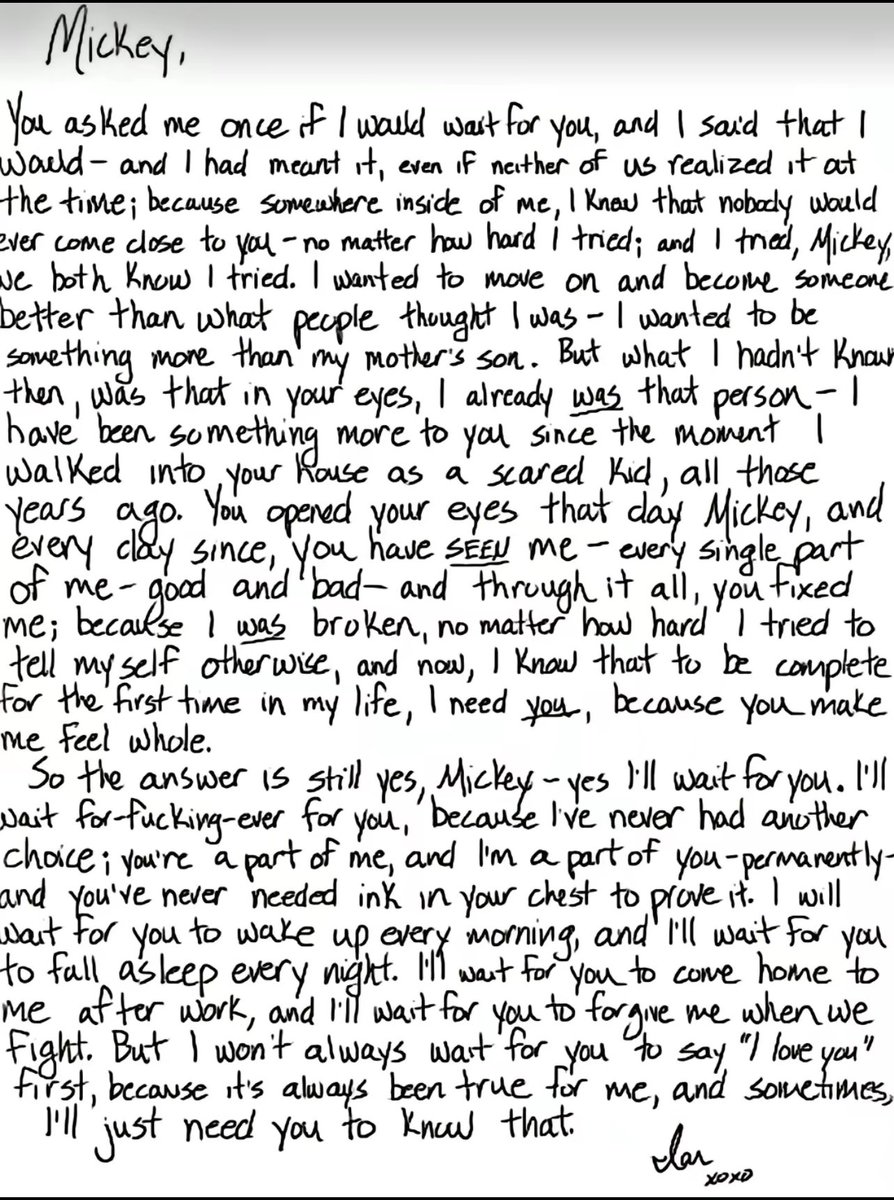 Mickey,
You asked me once if I would wait for you, and I said that I
would - and I had meant it, even if neither of us realized it at
the time; because somewhere inside of me, I knew that nobody would
ever come close to you - no matter how hard I tried; and I tried, Mickey,
we both know I tried. I wanted to move on and become someone
better than what people thought I was - I wanted to be
something more than my mother's son. But what I hadn't known
then, was that in your eyes, I already was that person - I
have been something more to you since the moment I
walked into your house as a scared kid, all those
years ago. You opened your eyes that day Mickey, and
every day since, you have SEEN me - every single part
of me - good and bad - and through it all, you fixed
me; because I was broken, no matter how hard I tried to
tell myself otherwise, and now, I know that to be complete
for the first time in my life, I need you, because you make
me feel whole.
So the answer is still yes, Mickey - yes I'll wait for you. I'll
wait for-fucking-ever for you, because I've never had another
choice; you're a part of me, and I'm a part of you - permanently -
and you've never needed ink in your chest to prove it. I will
wait for you to wake up every morning, and I'll wait for you
to fall asleep every night. I'll wait for you to come home to
me after work, and I'll wait for you to forgive me when we
fight. But I won't always wait for you to say "I love you"
first, because it's always been true for me, and sometimes,
I'll just need you to know that.
Ian
xoxo